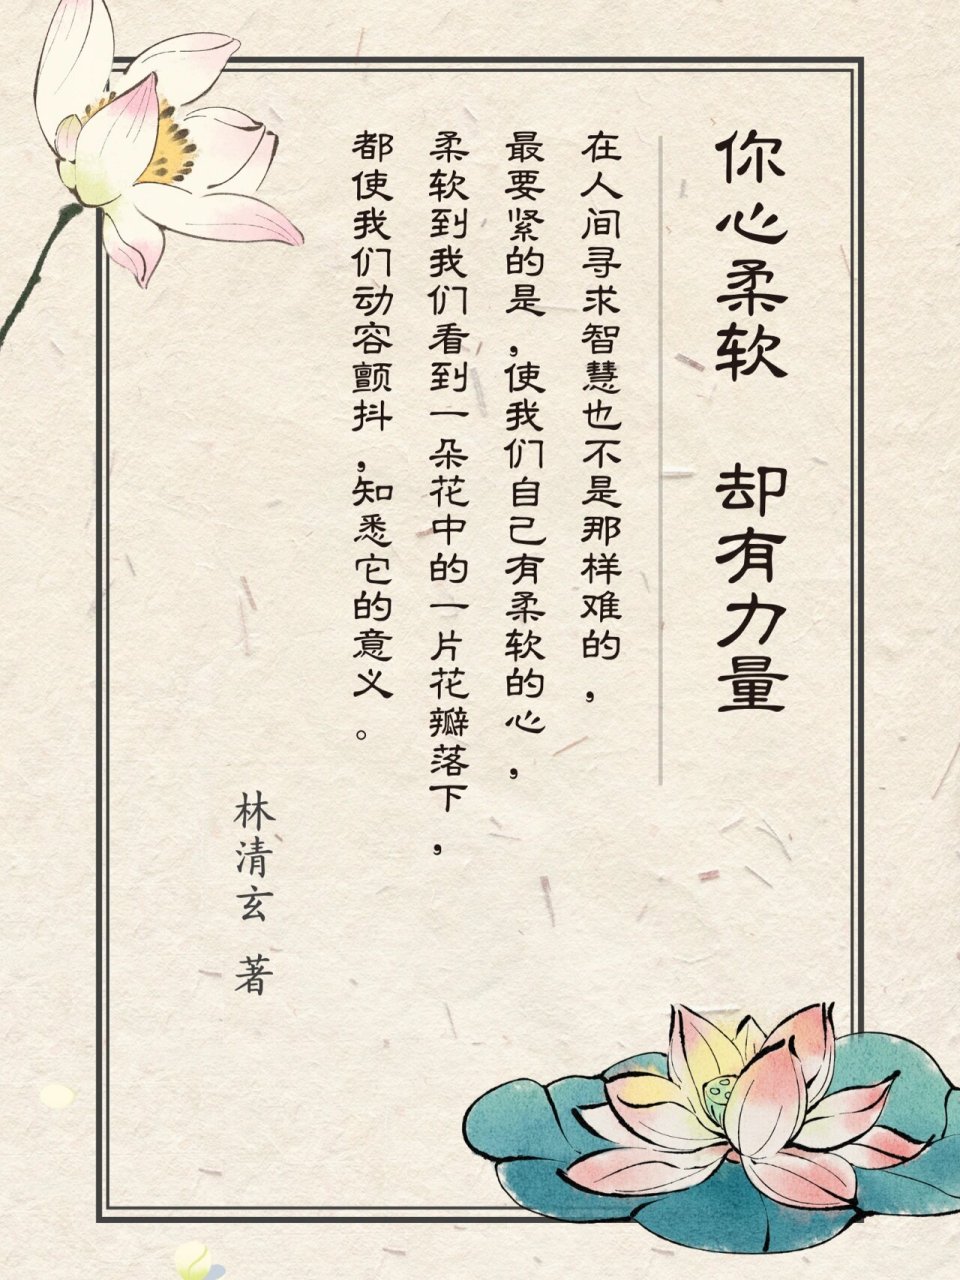 你心柔软 却有力量
在人间寻求智慧也不是那样难的，
最要紧的是，使我们自己有柔软的心，
柔软到我们看到一朵花中的一片花瓣落下，
都使我们动容颤抖，知悉它的意义。
林清玄 著